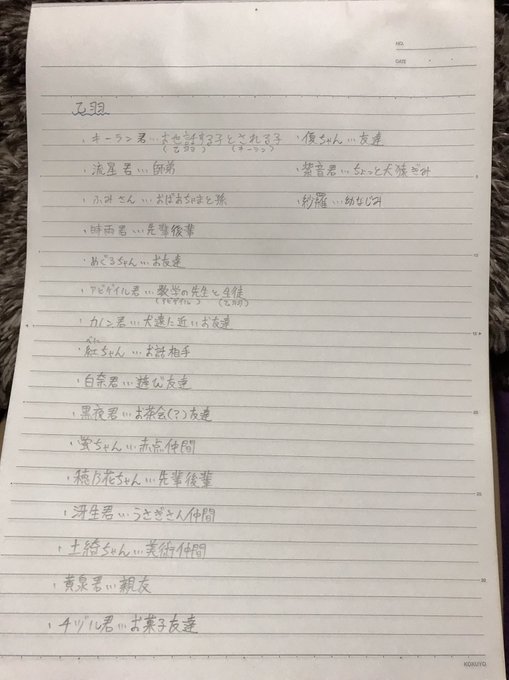 NO.
DATE
乙羽
・キーラン君…お世話する子とされる子
(乙羽) (キーラン)
・流星君…師弟
・ふみさん…おばあちゃまと孫
・時雨君…先輩後輩
・めぐるちゃん…お友達
・アビゲイル君…数学の先生と生徒
(アビゲイル) (乙羽)
・カノン君…犬達に近いお友達
べに
・紅ちゃん…お話相手
・白奈君…遊び友達
・黒夜君…お茶会(?)友達
・蛍ちゃん…赤点仲間
・穂乃花ちゃん…先輩後輩
・冴生君…うさぎさん仲間
・土綺ちゃん…美術仲間
・黄泉君…親友
・チヅル君…お菓子友達
・復ちゃん…友達
・紫音君…ちょっと犬猿ぎみ
・紗羅…幼なじみ
5
10
15
20
25
30
KOKUYO